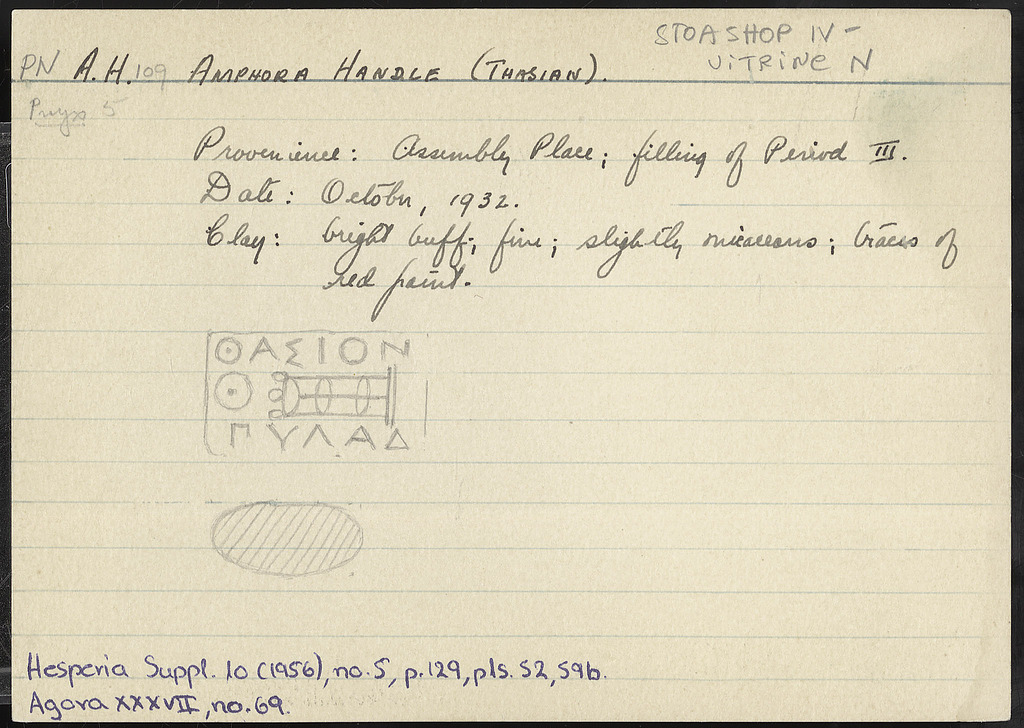 STOA SHOP IV -
VITRINE N
PN A.H. 109 AMPHORA HANDLE (THASIAN).
Pnyx 5
Provenience: Assembly Place; filling of Period III.
Date: October, 1932.
Clay: bright buff; fine; slightly micaceous; traces of
red paint.
ΘΑΣΙΟΝ
ΠΥΛΑΔ
Hesperia Suppl. 10 (1956), no. 5, p. 129, pls. 52, 59b.
Agora XXXVII, no. 69.